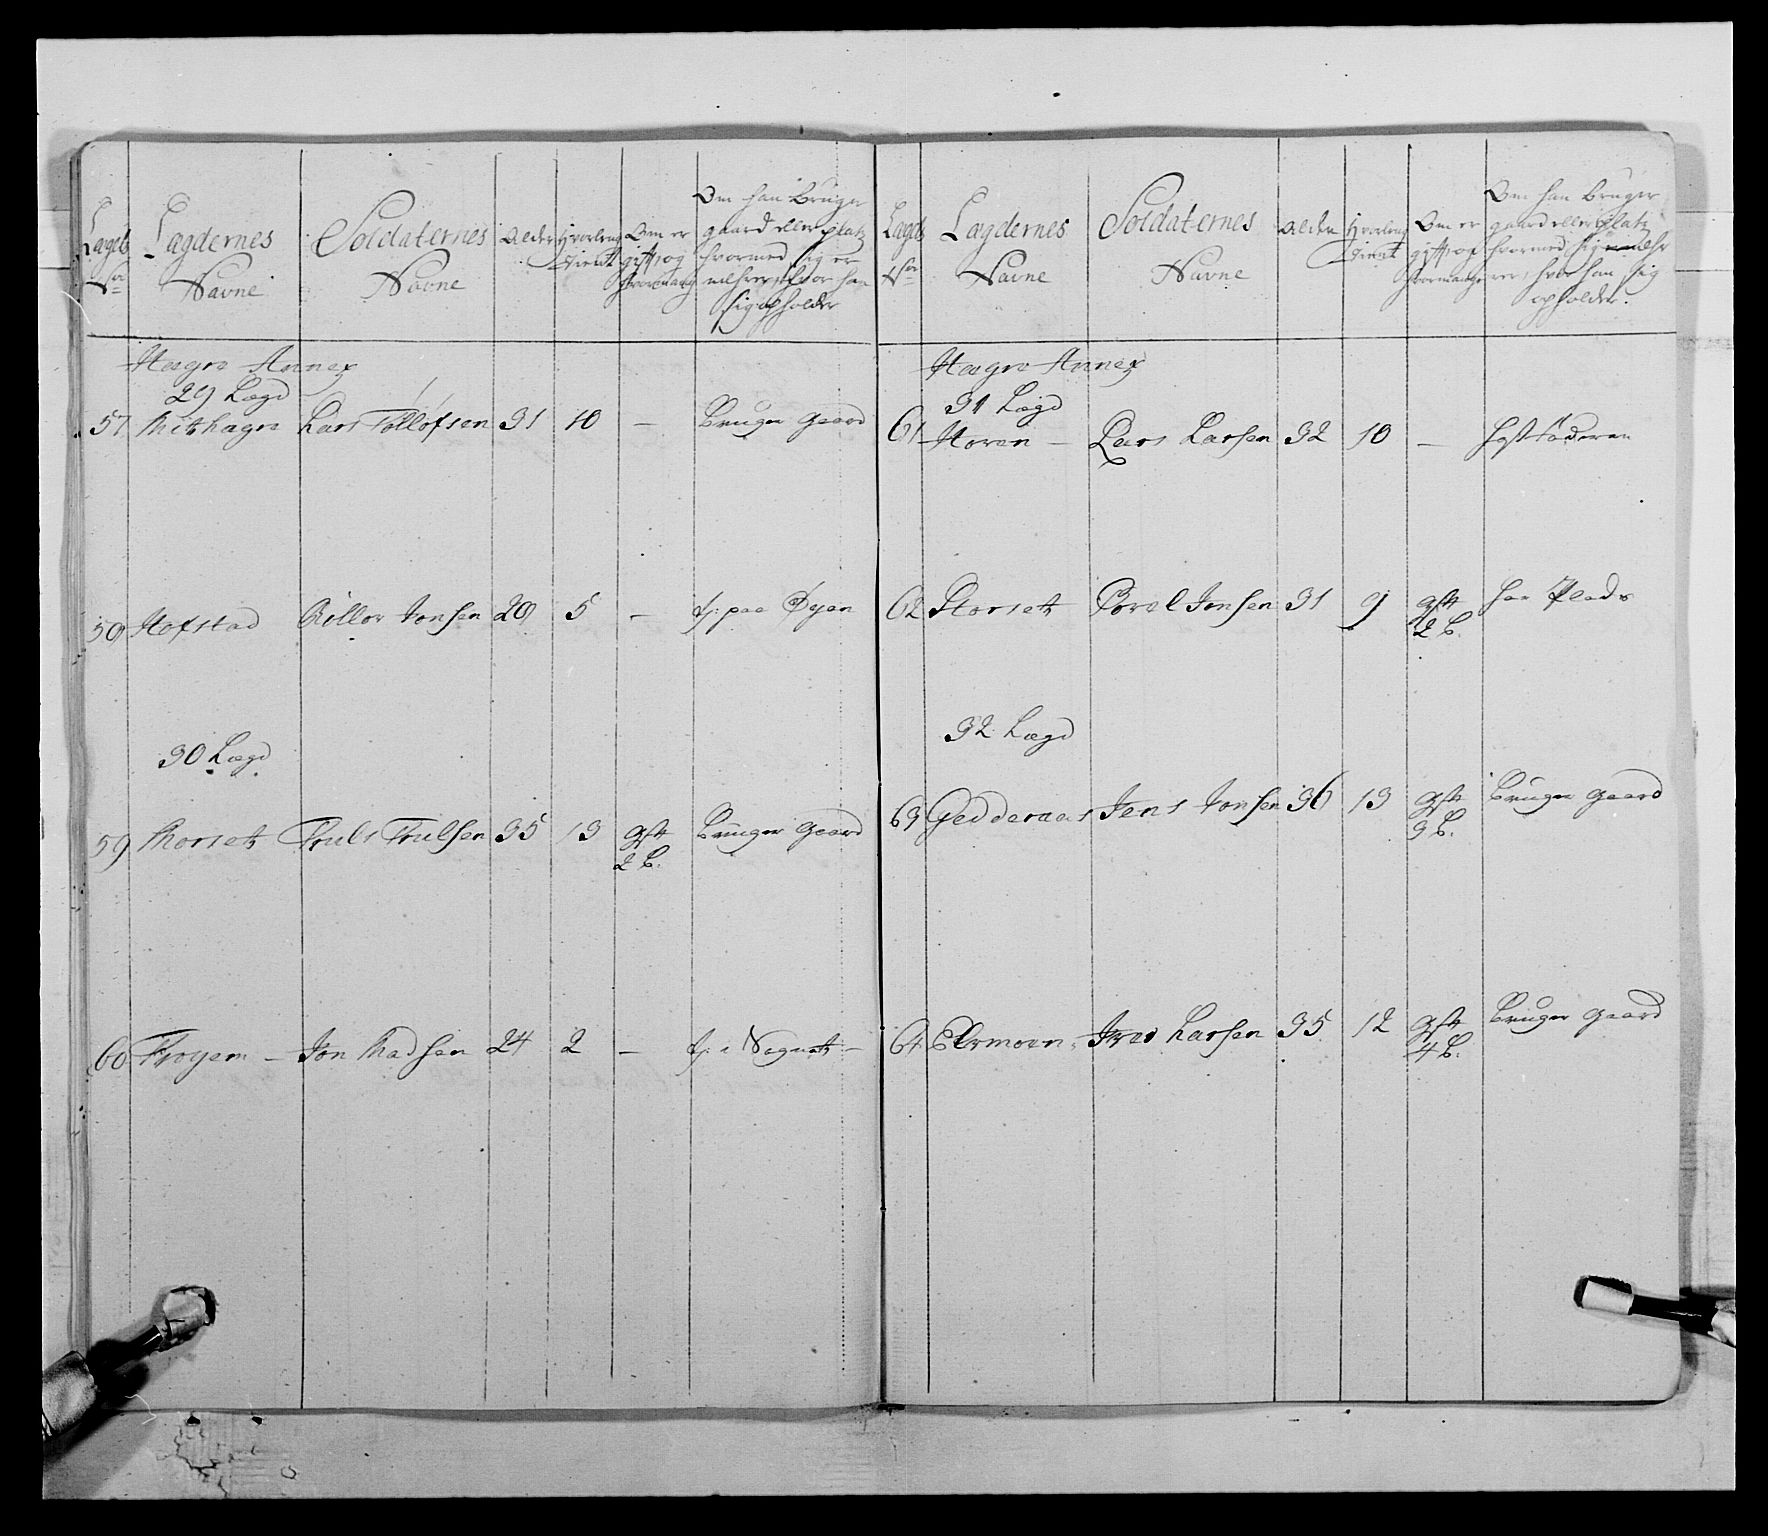 Lægds No
Lægdernes Navne
Soldaternes Navne
Alder
Hvorleng tient
Om er gift, og hvormang
Om han bruger gaard eller platz hvormed sig er nelhrer, hvor han sig opholder
Hægre Annex
29 Lægd
57 Mithagre Lars Tølløfsen 31 10 — Bruger gaard
58 Hofstad Røllor Jonsen 28 5 — tj: paa Øyen
30 Lægd
59 Morset Truls Trulsen 35 13 gift 2 B. Bruger gaard
60 Frøyem – Jon Madsen 24 2 — tj: i Sognet –
Lægds No
Lægdernes Navne
Soldaternes Navne
Alder
Hvorleng tient
Om er gift, og hvormange
Om han bruger gaard eller platz hvormed sig nelhrer, hvor han sig opholder.
Hægre Annex
31 Lægd
61 Horen – Lars Larsen 32 10 — hos faderen
62 Storset Povel Jonsen 31 9 gift 2 B. har Plads
32 Lægd
63 Gedderaas Jens Jonsen 36 13 gift 3 B. Bruger gaard
64 Elvmoen Iver Larsen 35 12 gift 4 B. Bruger gaard